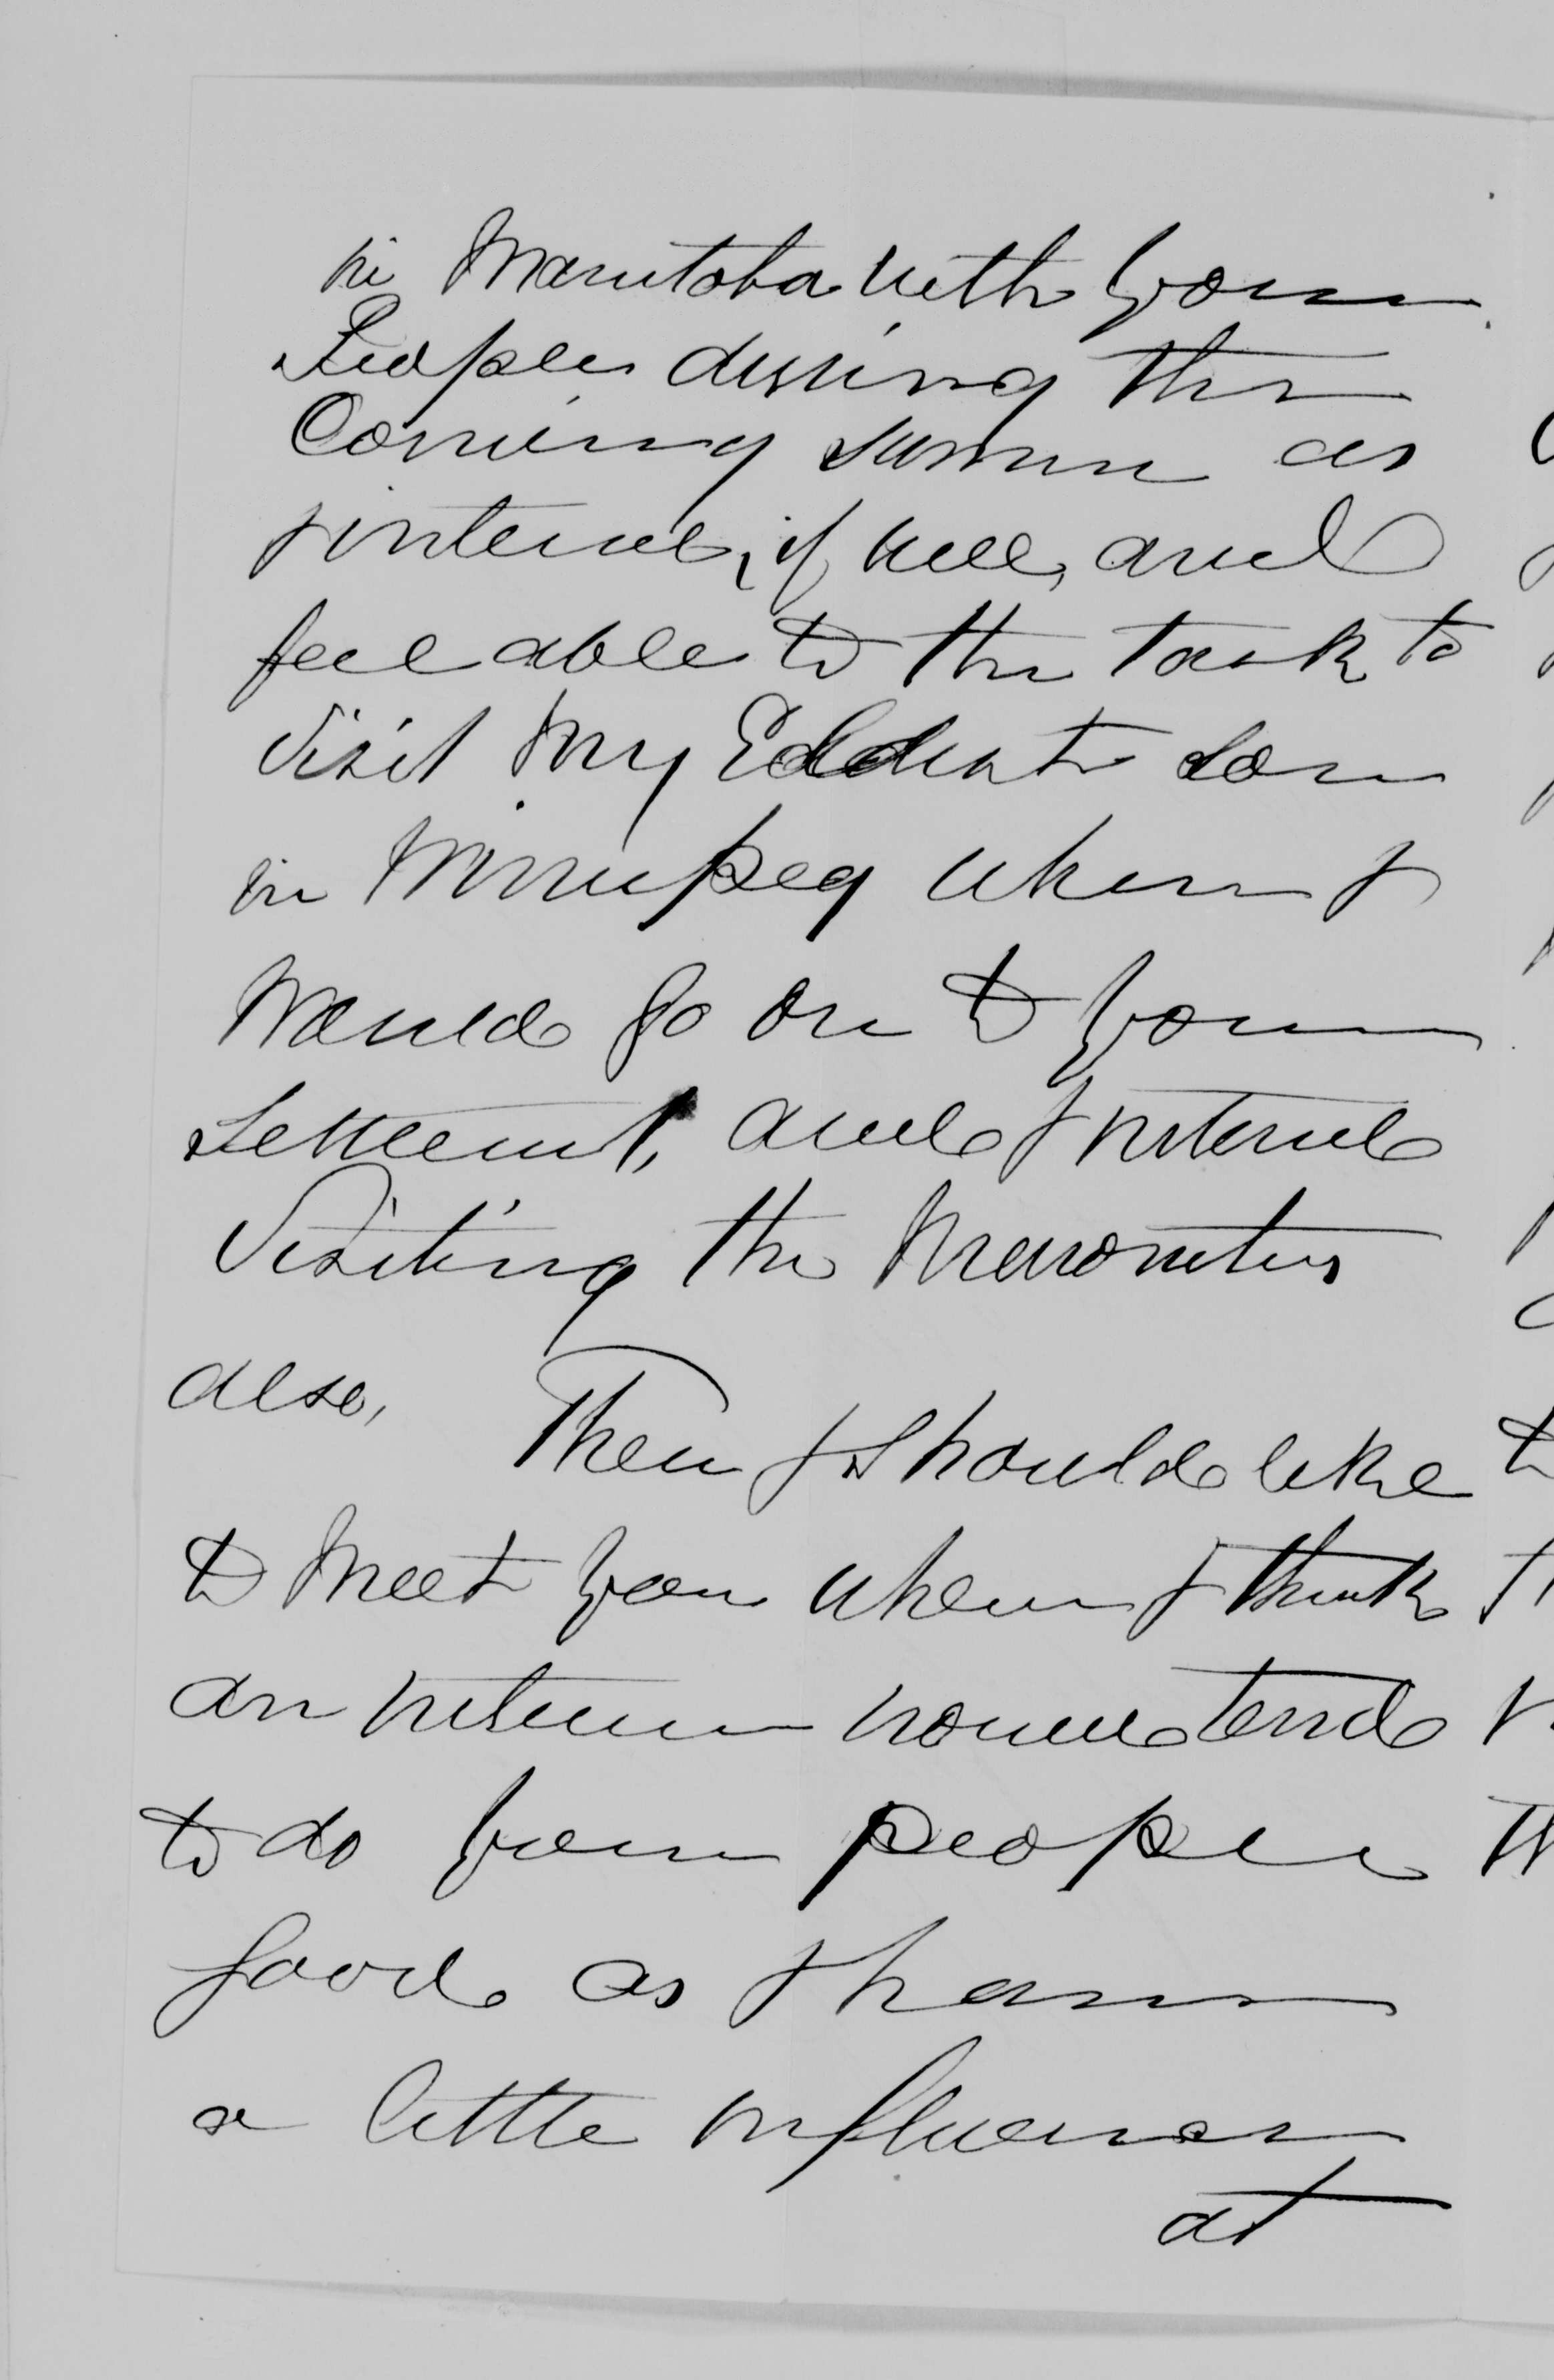 in Manitoba with your
People during the
Coming summer as
I intend, if well, and
feel able to the task to
visit my Eldest son
in Winnipeg when I
would go on to your
Settlement, and I intend
Visiting the Menonites
also, Then I should like
to meet you when I think
an interview would tend
to do your people
good as I have
a little influence
at